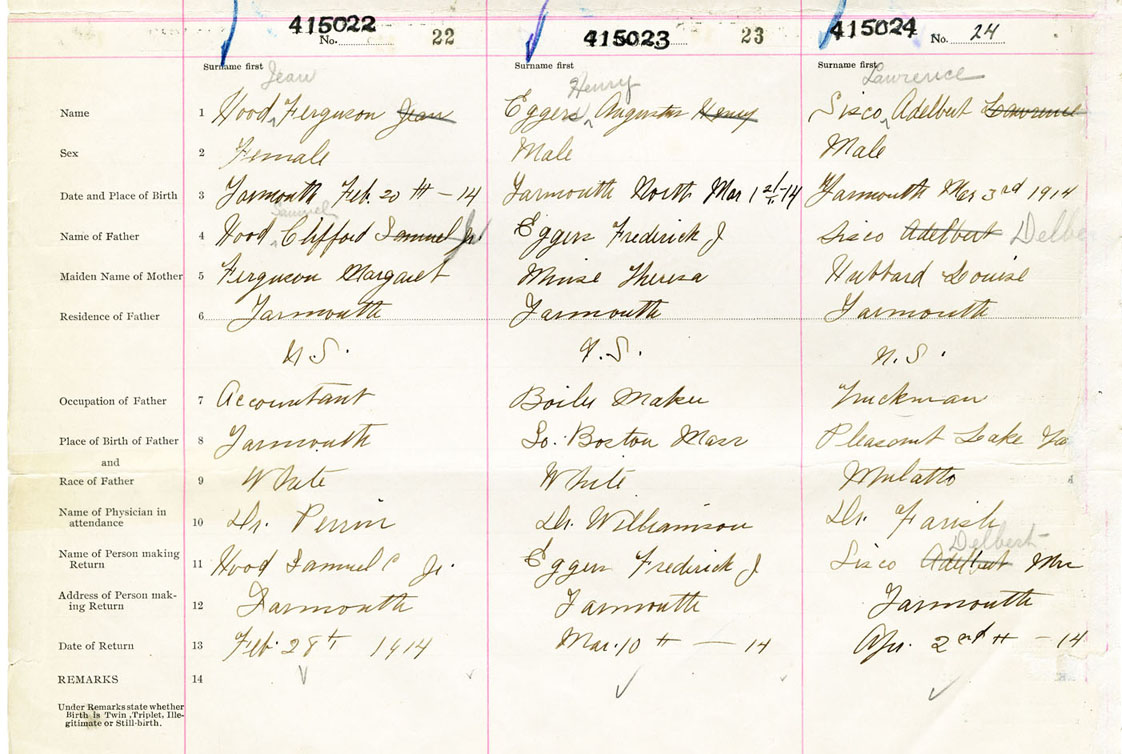 415022 415023 415024
No. 22 23 No. 24
Surname first Surname first Surname first
Jean Henry Lawrence
Name 1 Hood Ferguson Jean Eggers Augustus Henry Sisco Adelbert Lawrence
Sex 2 Female Male Male
Date and Place of Birth 3 Yarmouth Feb. 20th - 14 Yarmouth North Mar 1st - 14 Yarmouth Mar 3rd 1914
Samuel
Name of Father 4 Hood Clifford Samuel Jr Eggers Frederick J Sisco Adelbert Delbe
Maiden Name of Mother 5 Ferguson Margaret Theresa Hubbard Louise
Residence of Father 6 Yarmouth Yarmouth Yarmouth
N.S. N.S. N.S.
Occupation of Father 7 Accountant Boiler Maker Truckman
Place of Birth of Father 8 Yarmouth So. Boston Mass Pleasant Lake Ya
and
Race of Father 9 White White Mulatto
Name of Physician in
attendance 10 Dr. Perrin Dr. Williamson Dr. Farish
Delbert
Name of Person making
Return 11 Hood Samuel C Jr. Eggers Frederick J Sisco Adelbert Mrs
Address of Person mak-
ing Return 12 Yarmouth Yarmouth Yarmouth
Date of Return 13 Feb. 28th 1914 Mar. 10th - 14 Apr. - 14
REMARKS 14
Under Remarks state whether
Birth is Twin, Triplet, Ille-
gitimate or Still-birth.